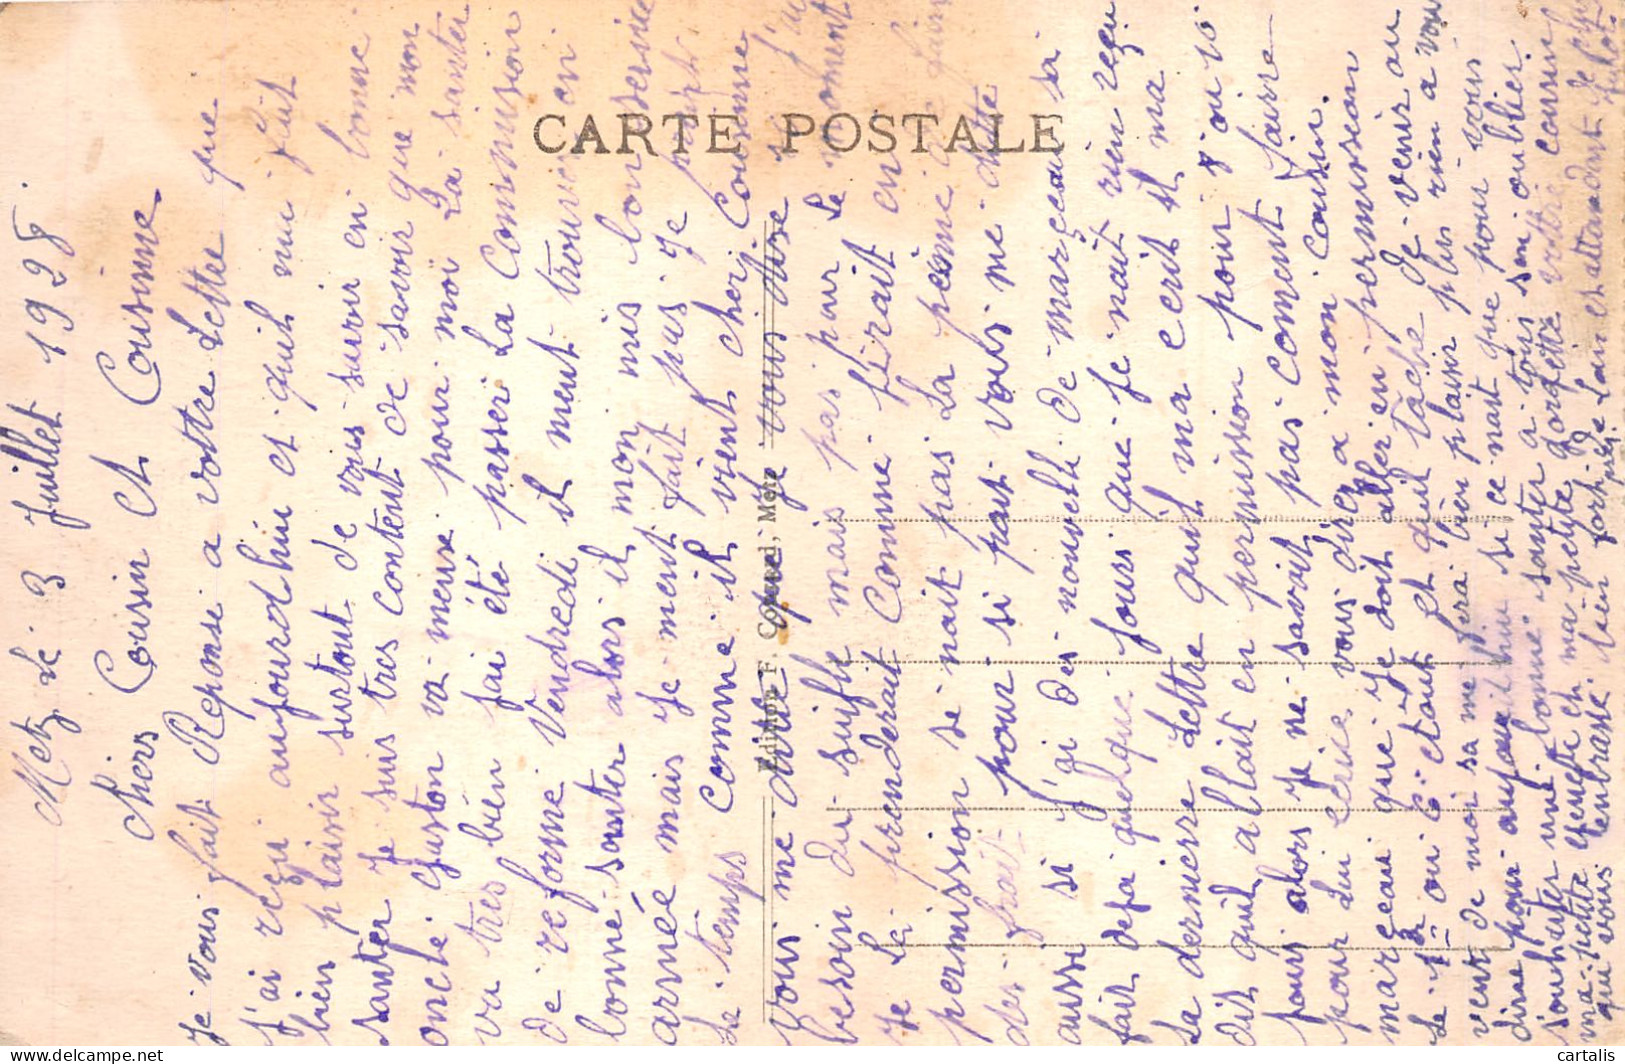 CARTE POSTALE
Edition F. Coqued, Metz
Metz Le 3 Juillet 1928.
chers Cousin et Cousinne
Je vous fait Reponse a vottre Lettre que
j'ai reçu aujourdhui et quil me fait
bien plaisir surtout de vous savoir en bonne
santer Je suis tres contend de savoir que mon
oncle Gaston va mieuse pour moi La santer
va tres bien j'ai été passer La Commission
de reforme Vendredi il meut trouver en
bonne santer alors il mon mis bon service
armée mais Je ment fait pas Je pense
Le temps Comme il vient cher Cousinne
vous me dite que Je vous dise si j'ai
besoin du suiffe mais pas pour Le moment
Je Le prenderait Comme j'irait en
permission se nait pas La peinne de faire
des frait pour si part vous me dite
aussi si j'ai des nouvelle de marçeau si
fait deja quelque jours que je nait rien reçu
La derniere Lettre quil ma ecrit il ma
dit quil allait en permission pour 8 ou 10
jours alors Je ne savait pas coment faire
pour Lui ecrire vous direz a mon Cousin
marçeau que je doit aller en permission
Le 12 ou 15 etout et quil tache de venir au
vent de moi sa me fera bien plaisir plus rien a vous
dire pour aujourdhui si ce nait que pour vous
souhaiter une bonne santer a tous sen oublier
ma petite Ginette et ma petite Jordette vottre cousin
qui vous enbrasse bien fort de Loin et attendant de